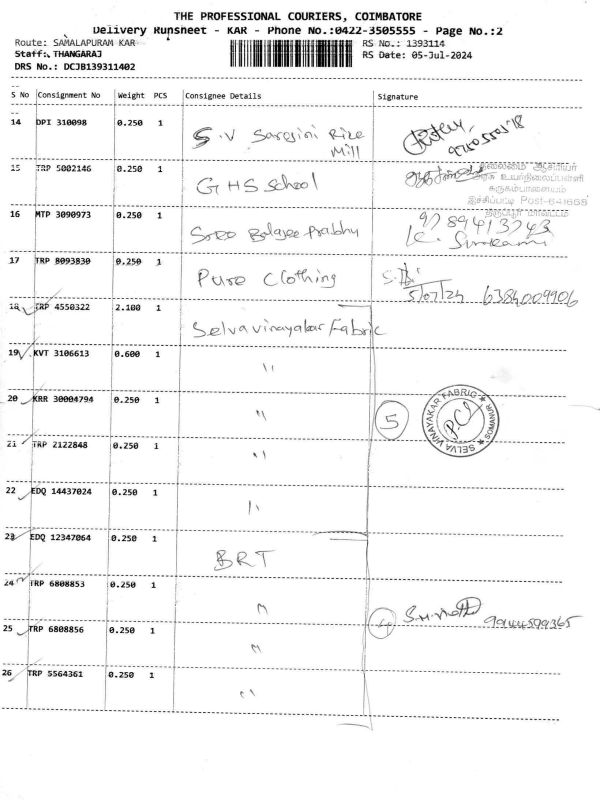 THE PROFESSIONAL COURIERS, COIMBATORE
Delivery Runsheet - KAR - Phone No.:0422-3505555 - Page No.:2
Route: SAMALAPURAM KAR
RS No.: 1393114
Staff: THANGARAJ
RS Date: 05-Jul-2024
DRS No.: DCJB139311402
S No Consignment No Weight PCS Consignee Details Signature
14 DPI 310098 0.250 1 S.V Sarojini Rice
Mill
15 TRP 5002146 0.250 1 GHS School
தலைமை ஆசிரியர்
அரசு உயர்நிலைப்பள்ளி
கருகம்பாளையம்
இச்சிப்பட்டி Post-641668
திருப்பூர் மாவட்டம்
16 MTP 3090973 0.250 1 Sree Balajee Prabhu
9789413743
17 TRP 8093830 0.250 1 Pure Clothing
5/07/24 6384009906
18 TRP 4550322 2.100 1 Selvavinayakar Fabric
19 KVT 3106613 0.600 1 "
20 KRR 30004794 0.250 1 " 5
SELVA VINAYAKAR FABRIC ★ SOMANUR ★
21 TRP 2122848 0.250 1 "
22 EDQ 14437024 0.250 1 "
23 EDQ 12347064 0.250 1 BRT
24 TRP 6808853 0.250 1 " 4
9944599365
25 TRP 6808856 0.250 1 "
26 TRP 5564361 0.250 1 "